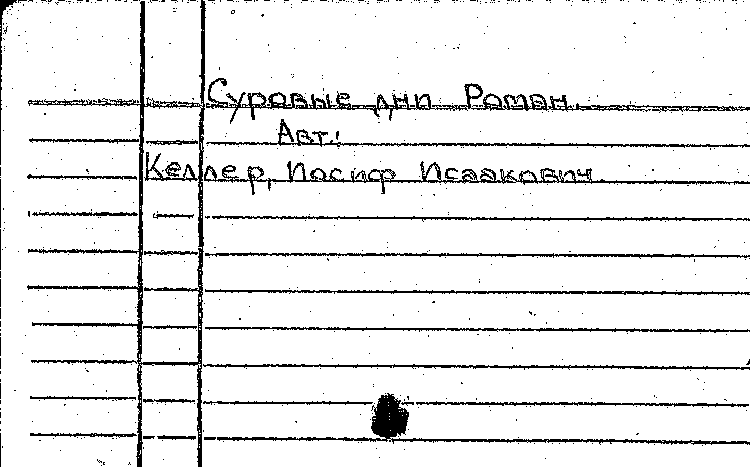 Суровые дни Роман.
Авт.:
Келлер, Иосиф Исаакович.